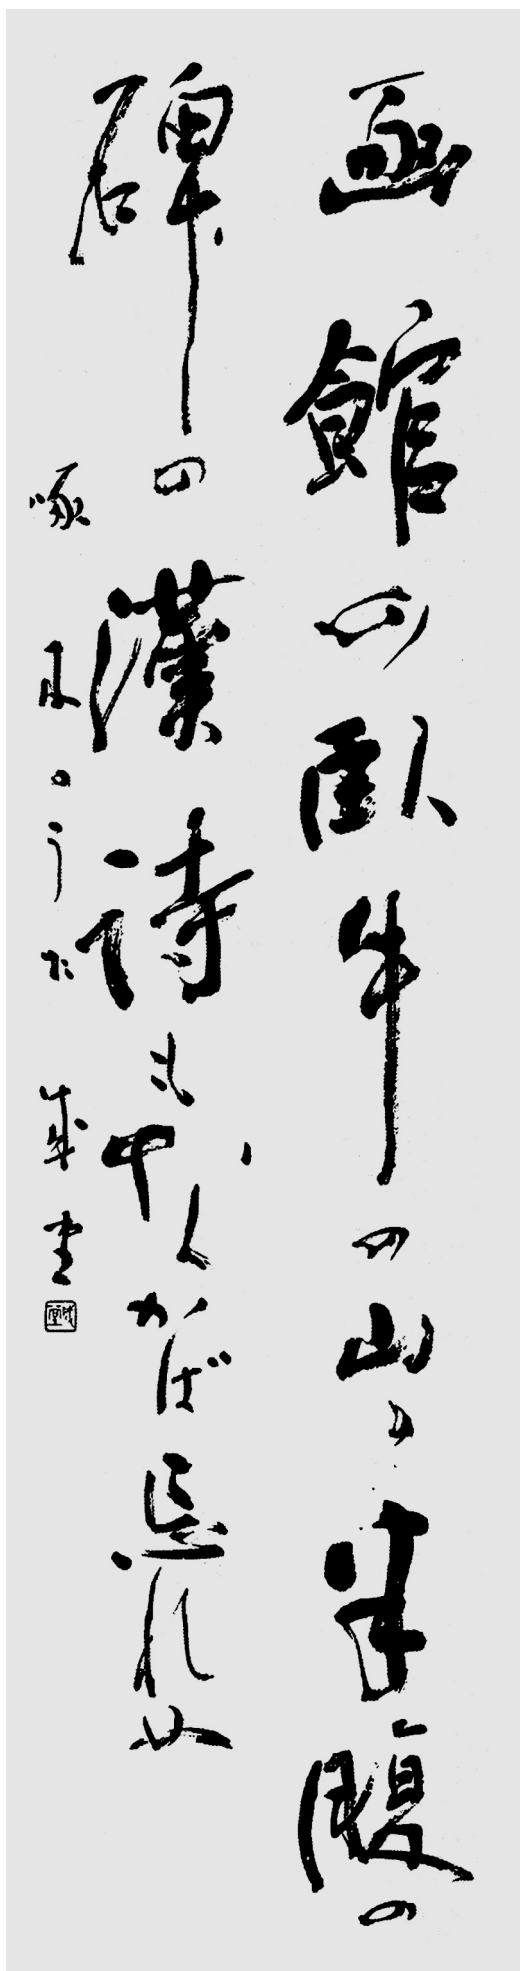 函館の臥牛の山の半腹の
碑の漢詩もなかば忘れぬ
啄木のうた 成堂